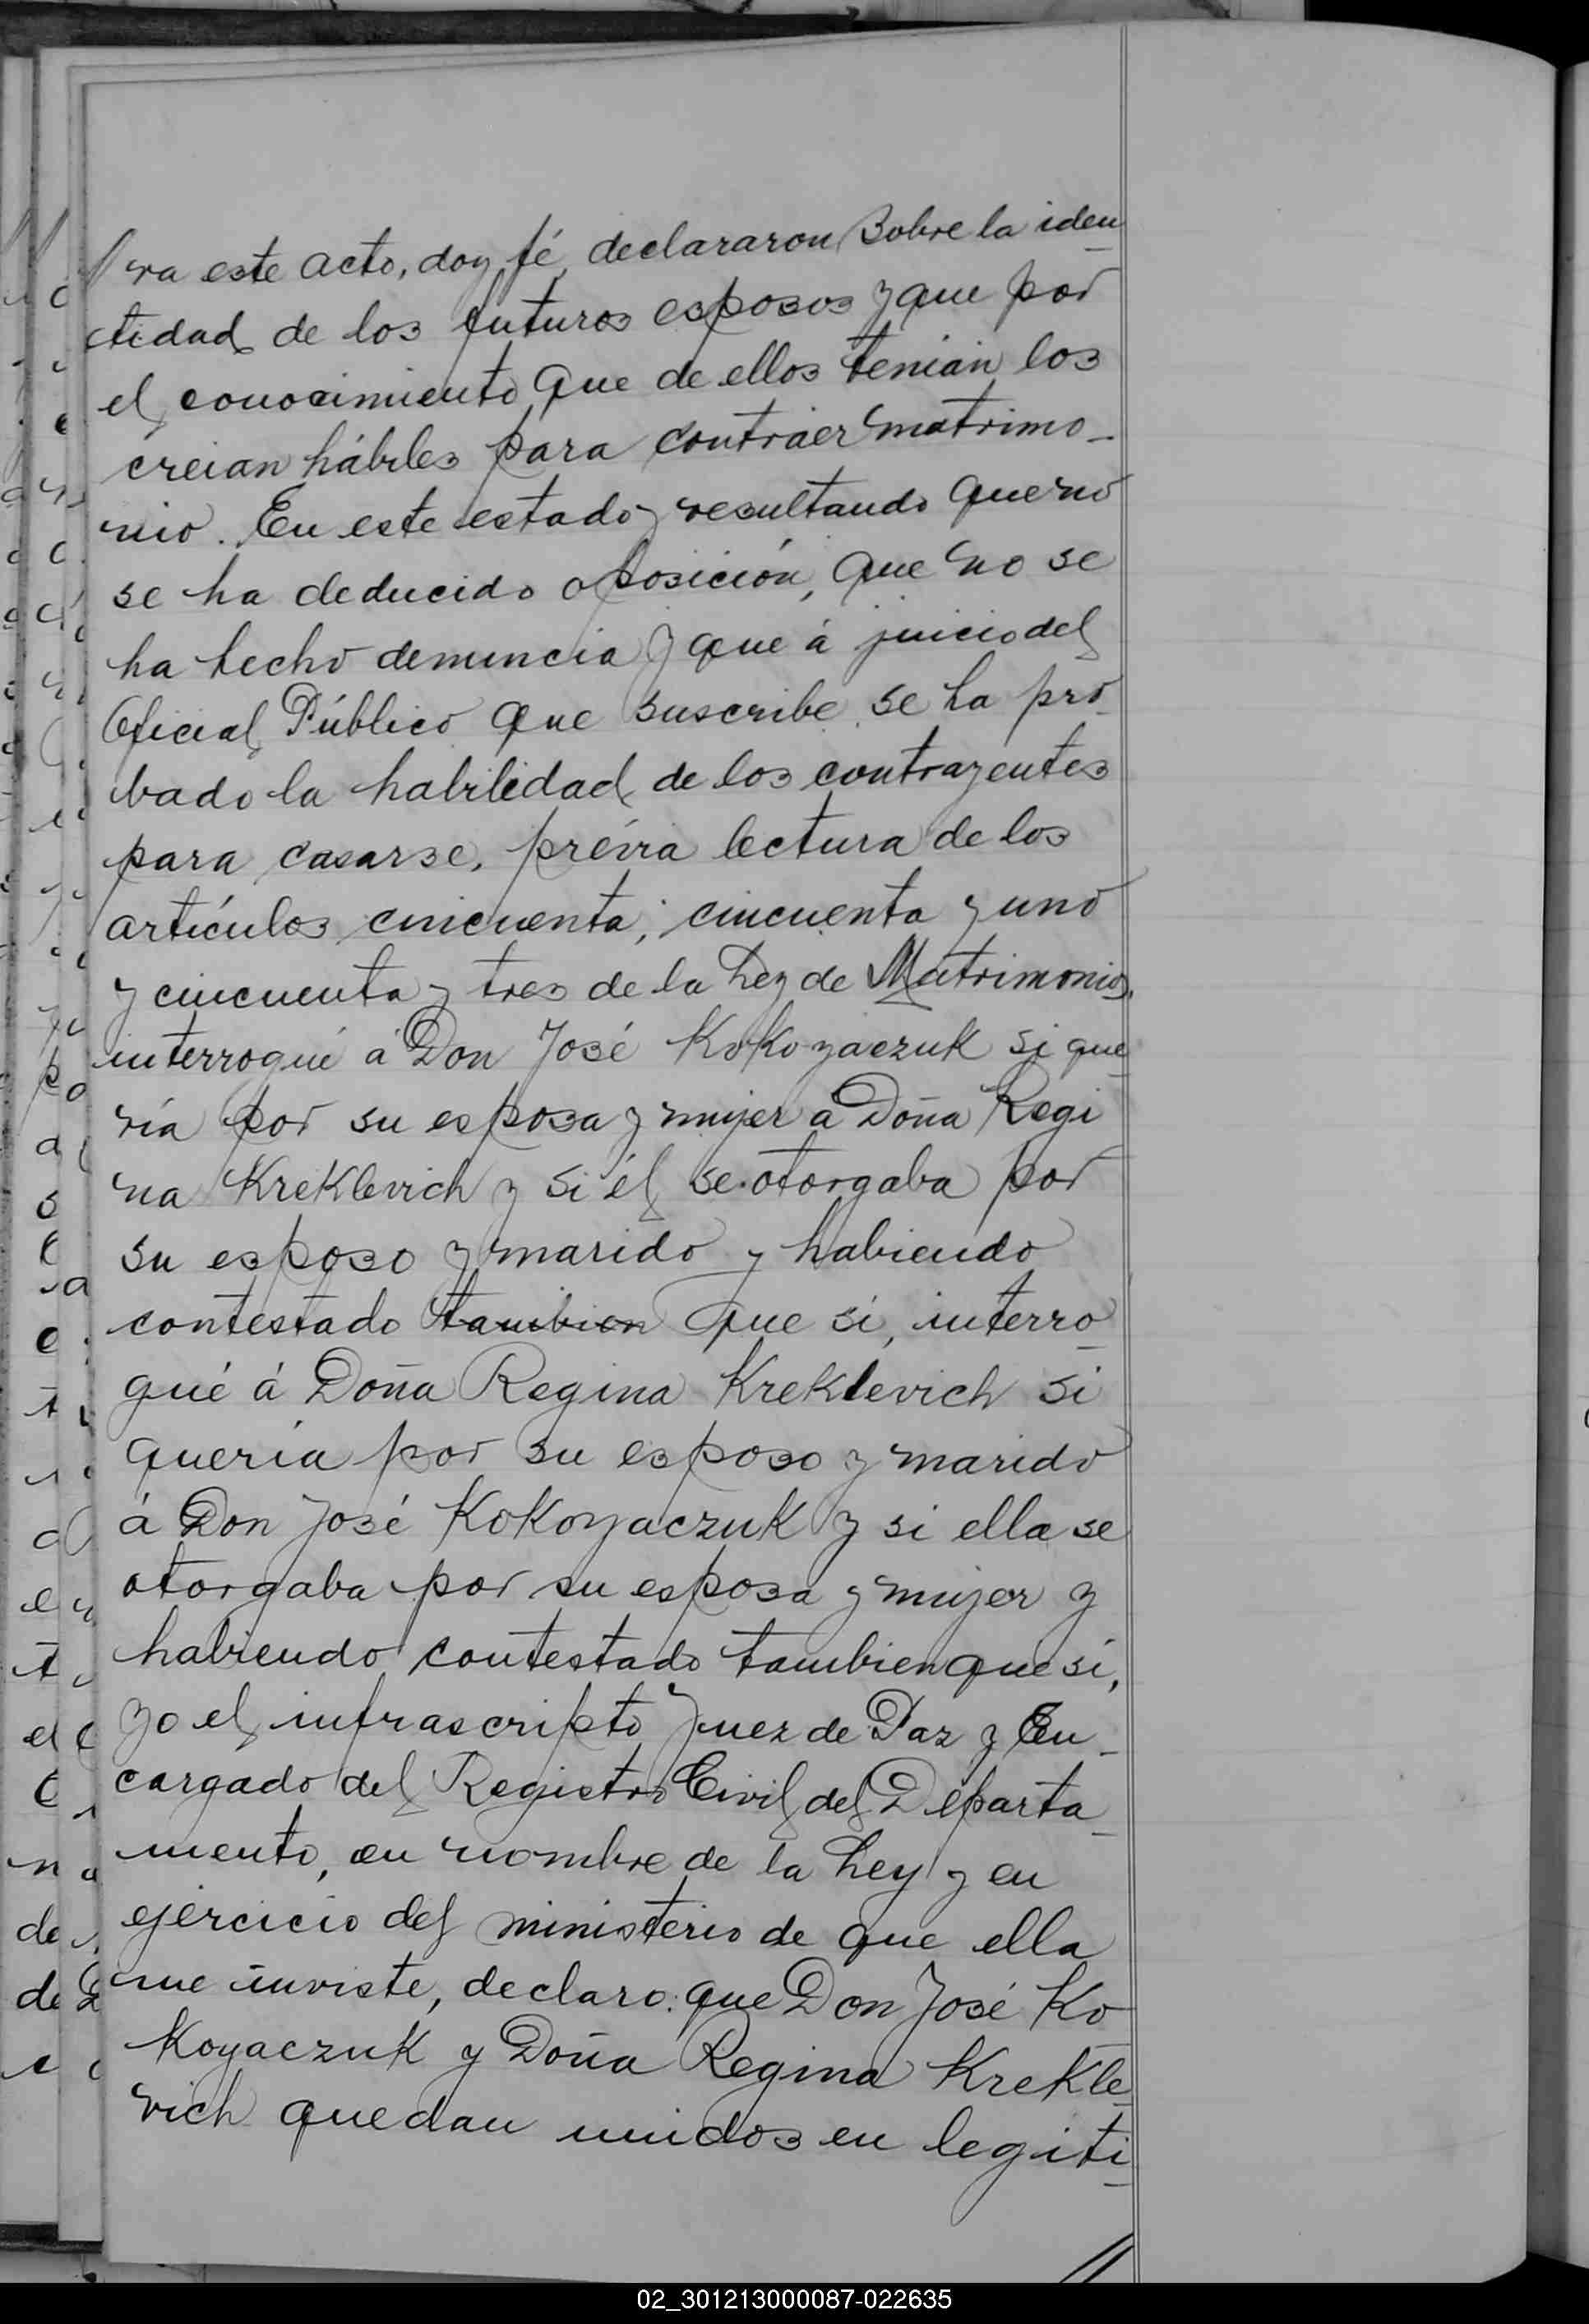 //ra este acto, doy fé, declararon sobre la iden
tidad de los futuros esposos y que por
el conocimiento que de ellos tenian los
creian hábiles para contraer matrimo-
nio. En este estado y resultando que no
se ha deducido oposición, que no se
ha hecho denuncia y que á juicio del
Oficial Público que suscribe se ha pro
bado la habilidad de los contrayentes
para casarse, prévia lectura de los
artículos cincuenta; cincuenta y uno
y cincuenta y tres de la Ley de Matrimonio,
interrogué á Don José Kokoyaczuk si que
ría por su esposa y mujer á Doña Regi
na Kreklevich y si él se otorgaba por
su esposo y marido y habiendo
contestado tambien que si, interro
gué á Doña Regina Kreklevich si
quería por su esposo y marido
á Don José Kokoyaczuk y si ella se
otorgaba por su esposa y mujer y
habiendo contestado tambien que sí,
yo el infrascripto Juez de Paz y En-
cargado del Registro Civil del Departa
mento, en nombre de la Ley y en
ejercicio del ministerio de que ella
me inviste, declaro: que Don José Ko
Koyaczuk y Doña Regina Krekle
vich quedan unidos en legiti
//
02_301213000087-022635